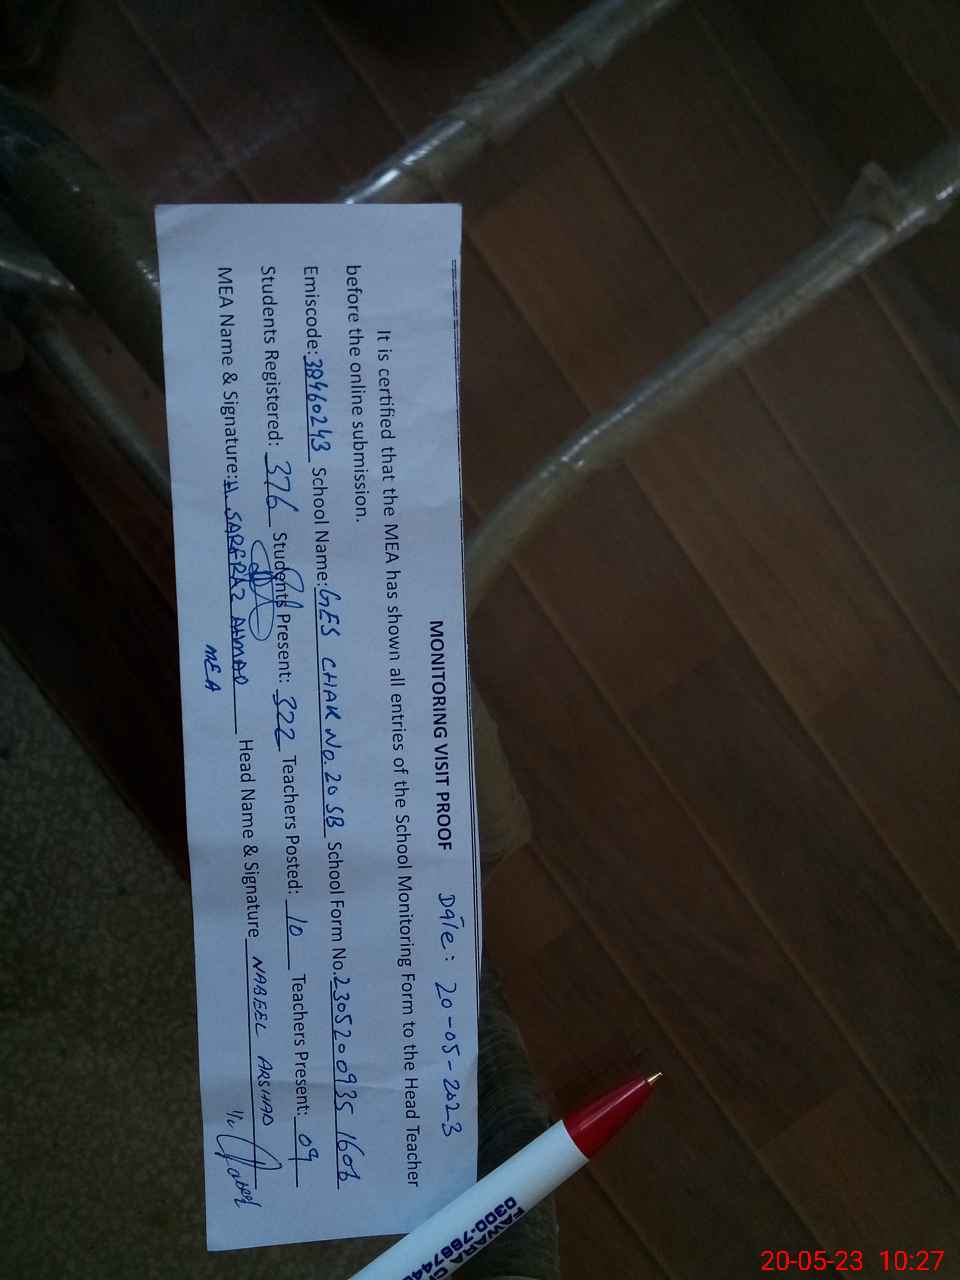 MONITORING VISIT PROOF Date: 20-05-2023
It is certified that the MEA has shown all entries of the School Monitoring Form to the Head Teacher
before the online submission.
Emiscode: 38460243 School Name: GES CHAK No. 20 SB School Form No. 230520 0935 1606
Students Registered: 376 Students Present: 322 Teachers Posted: 10 Teachers Present: 09
MEA Name & Signature: H. SARFRAZ AHMAD Head Name & Signature NABEEL ARSHAD
MEA
FAWARA
0300-788744
20-05-23 10:27